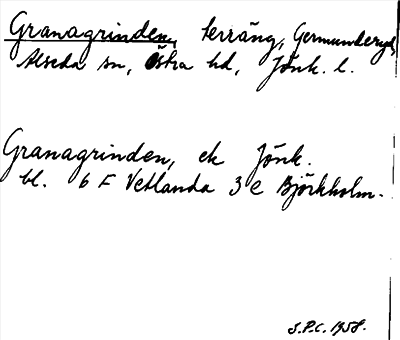 Granagrinden, terräng, Germunderyd,
Alseda sn, Östra hd, Jönk. l.
Granagrinden, ek Jönk.
bl. 6 F Vetlanda 3 e Björkholm.
S.P.C. 1958.